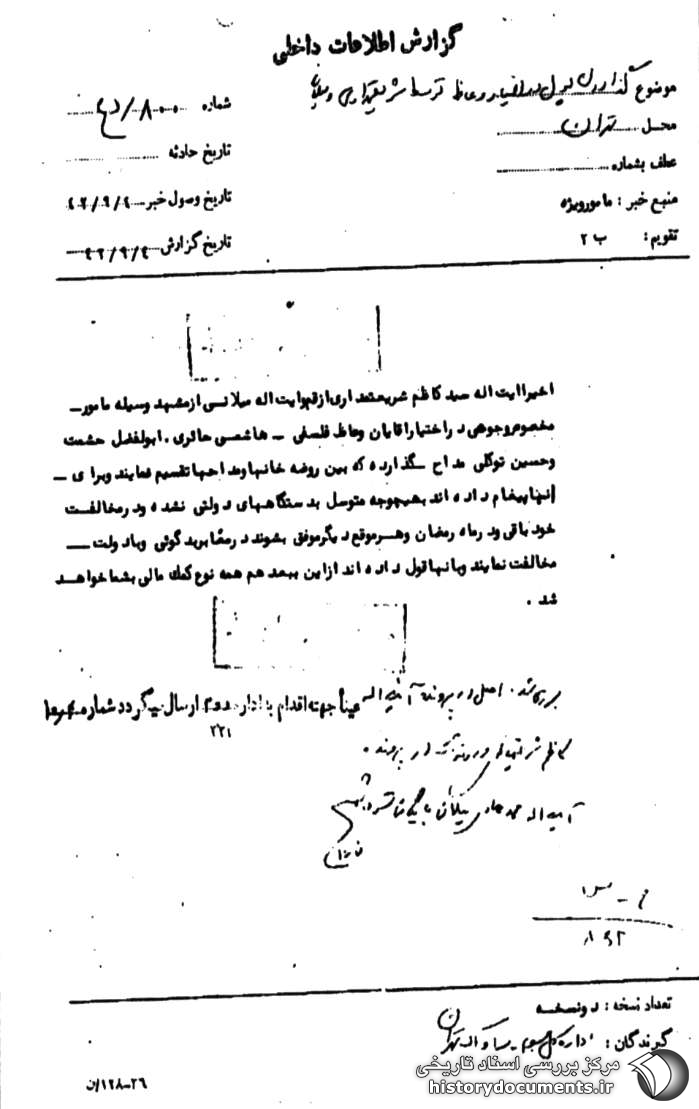 گزارش اطلاعات داخلی
موضوع گذاردن پول در اختیار وعاظ توسط شریعتمداری و میلانی
محل تهران
عطف بشماره
منبع خبر : مامورویژه
تقویم : ب ۲
شماره ۸۰۰
تاریخ حادثه
تاریخ وصول خبر ۴۲/۹/۴
تاریخ گزارش ۴۲/۹/۴
اخیرا ایت اله سید کاظم شریعتمداری از قم و ایت اله میلانی از مشهد وسیله مامور ـ
مخصوص وجوهی در اختیار اقایان وعاظ فلسفی ـ هاشمی حائری . ابولفضل حشمت
وحسین توکلی مداح گذارده که بین روضه خانها ومداحها تقسیم نمایند وبرای ـ
انها پیغام داده اند بهیچوجه متوسل بدستگاههای دولتی نشده ودر مخالفت
خود باقی ودر ماه رمضان وهر موقع دیگر موفق بشوند در معابر بدگوئی وبا دولت ــ
مخالفت نمایند وبانها قول داده اند از این ببعد هم همه نوع کمك مالی بشما خواهد
شد .
اصل در پرونده آیت اله
عیناً جهت اقدام باداره دوم ارسال میگردد شماره
۲۲۱
کاظم شریعتمداری در پرونده .
آیت اله محمد هادی میلانی بایگانی شود
۸۶۲
تعداد نسخه : دونسخه
گیرندگان : اداره کل سوم ـ ساواک تهران
۲۶-۱۲۸/ن
مرکز بررسی اسناد تاریخی
historydocuments.ir